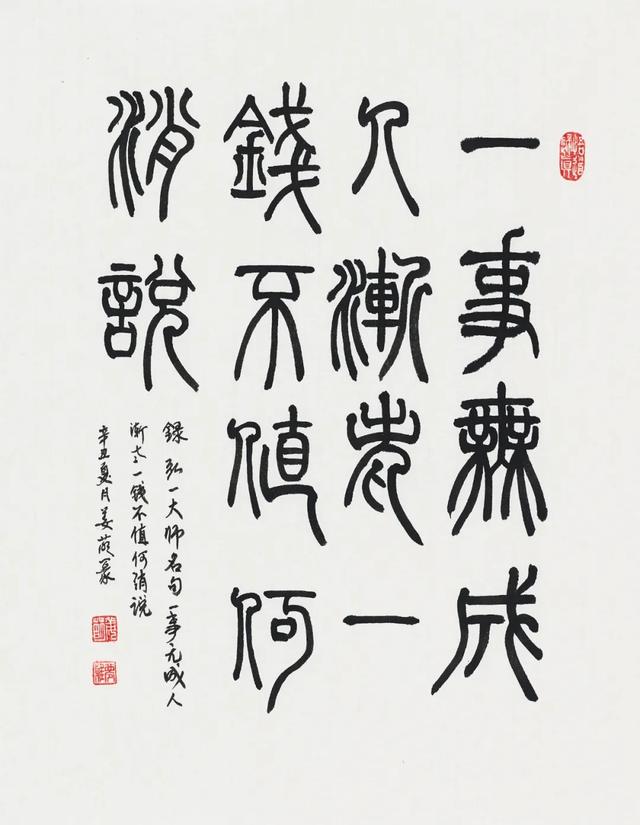 一事無成
人漸老一
錢不值何
消說
録 弘一大师名句 一事无成人
渐老一钱不值何消说
辛丑夏月姜篆